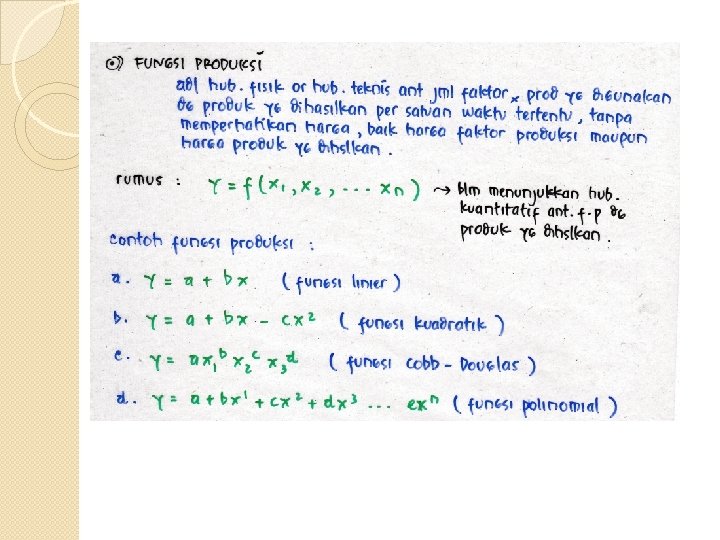 ⊙) FUNGSI PRODUKSI
adl hub. fisik or hub. teknis ant jml faktor₂ prod yg digunakan
dg produk yg dihasilkan per satuan waktu tertentu, tanpa
memperhatikan harga, baik harga faktor produksi maupun
harga produk yg dihslkan.
rumus : Y = f (x₁, x₂, ... xn) → blm menunjukkan hub.
kuantitatif ant. f.p dg
produk yg dihslkan.
contoh fungsi produksi :
a. Y = a + bx (fungsi linier)
b. Y = a + bx - cx² (fungsi kuadratik)
c. Y = ax₁ᵇ x₂ᶜ x₃ᵈ (fungsi cobb - Douglas)
d. Y = a + bx¹ + cx² + dx³ ... exⁿ (fungsi polinomial)